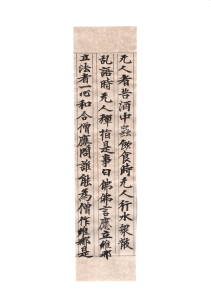 无人看苦酒中蟲飲食時无人行水衆散
乱語時无人彈指是事白佛佛言應立維那
立法者一心和合僧應問誰能為僧作維那是